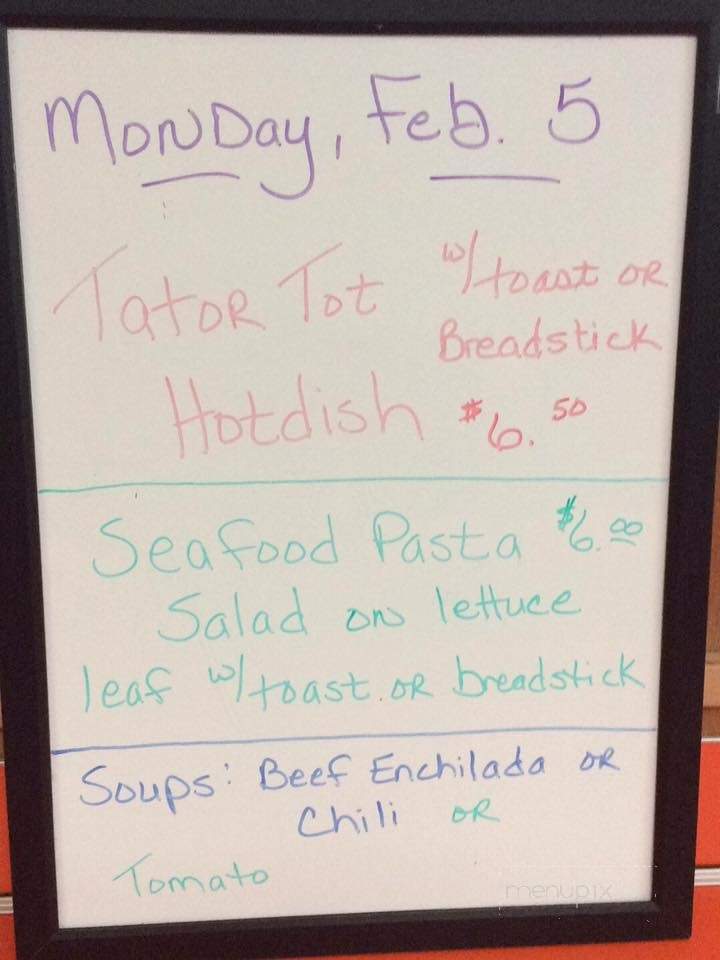 Monday, Feb. 5
Tator Tot w/ toast or
Breadstick
Hotdish $6.50
Seafood Pasta $6.00
Salad on lettuce
leaf w/ toast or breadstick
Soups: Beef Enchilada or
Chili or
Tomato
menupix